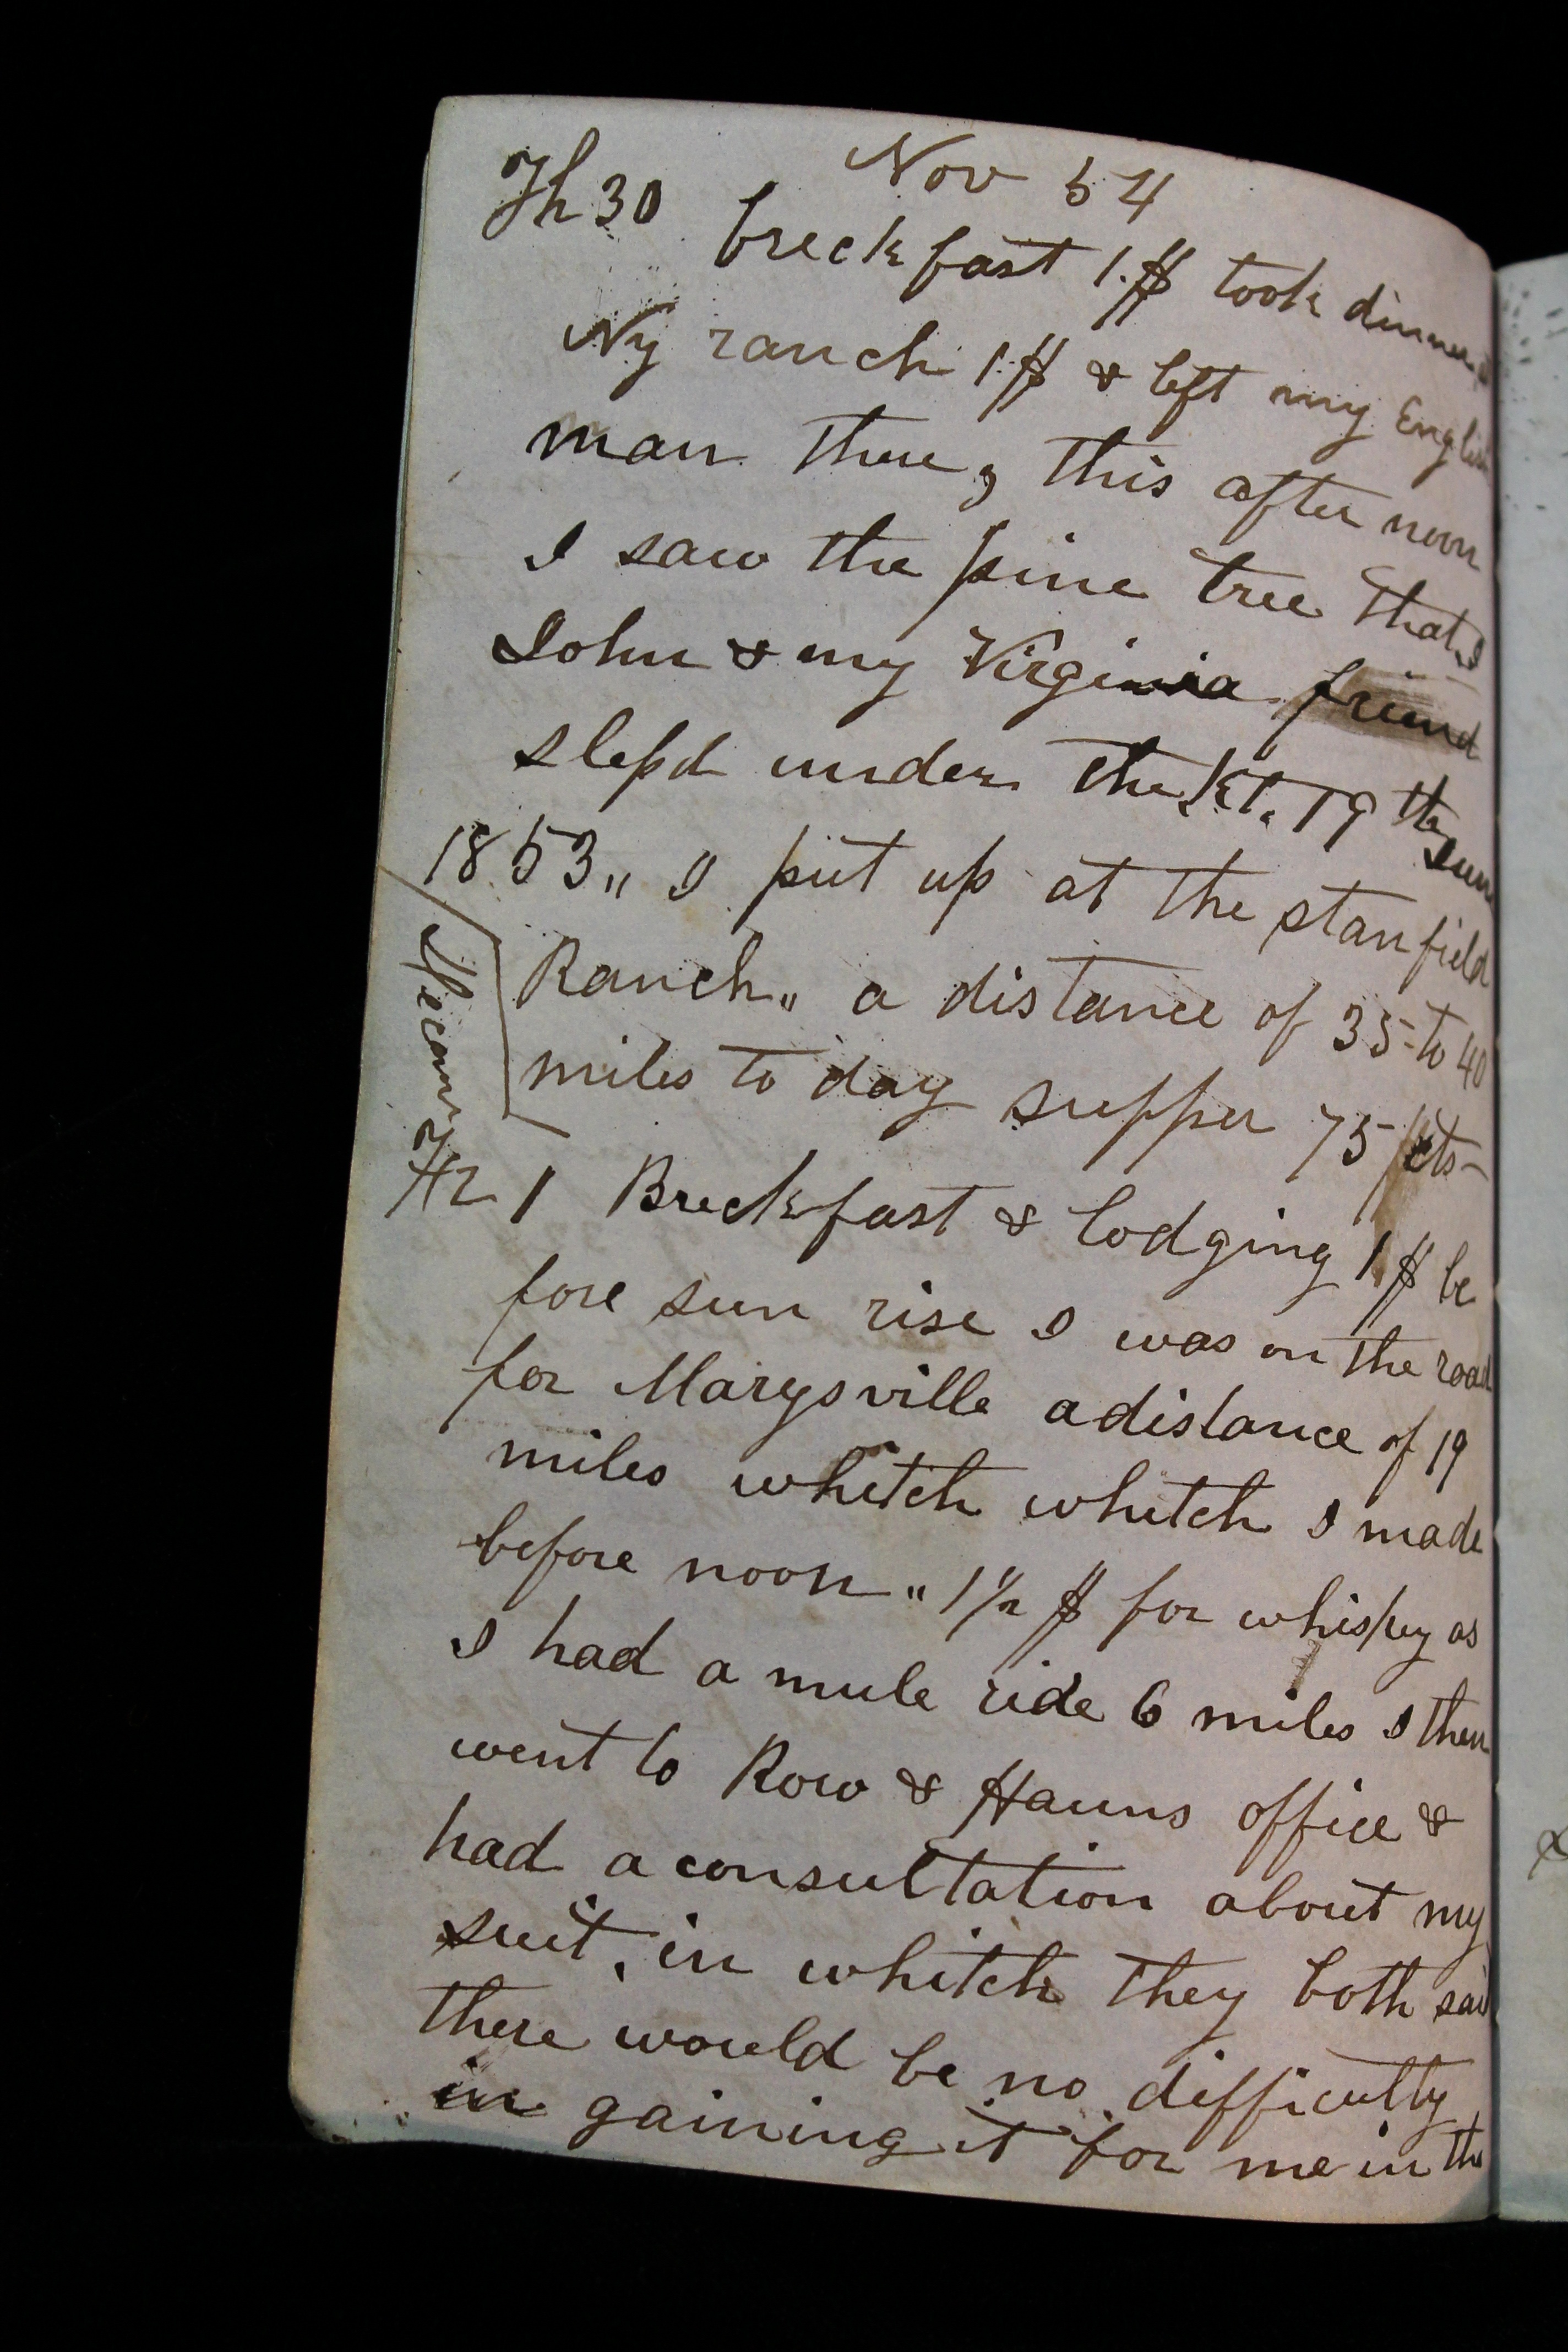 Nov 54
Th 30 breckfast 1.$ took dinner at
Ny ranch 1.$ & left my English
man there, this after noon
I saw the pine tree that I
John & my Virginia friend
slepd under the 19 the June
1853„ I put up at the stanfield
Ranch„ a distance of 35 to 40
miles to day supper 75 cts
Decem
Fr 1 Breckfast & lodging 1 $ be
fore sun rise I was on the road
for Marysville a distance of 19
miles whitch whitch I made
before noon „ 1 1/2 $ for whiskey as
I had a mule ride 6 miles I then
went to Row & Hauns office &
had a consultation about my
suit, in whitch they both said
there would be no difficulty
in gaining it for me in the